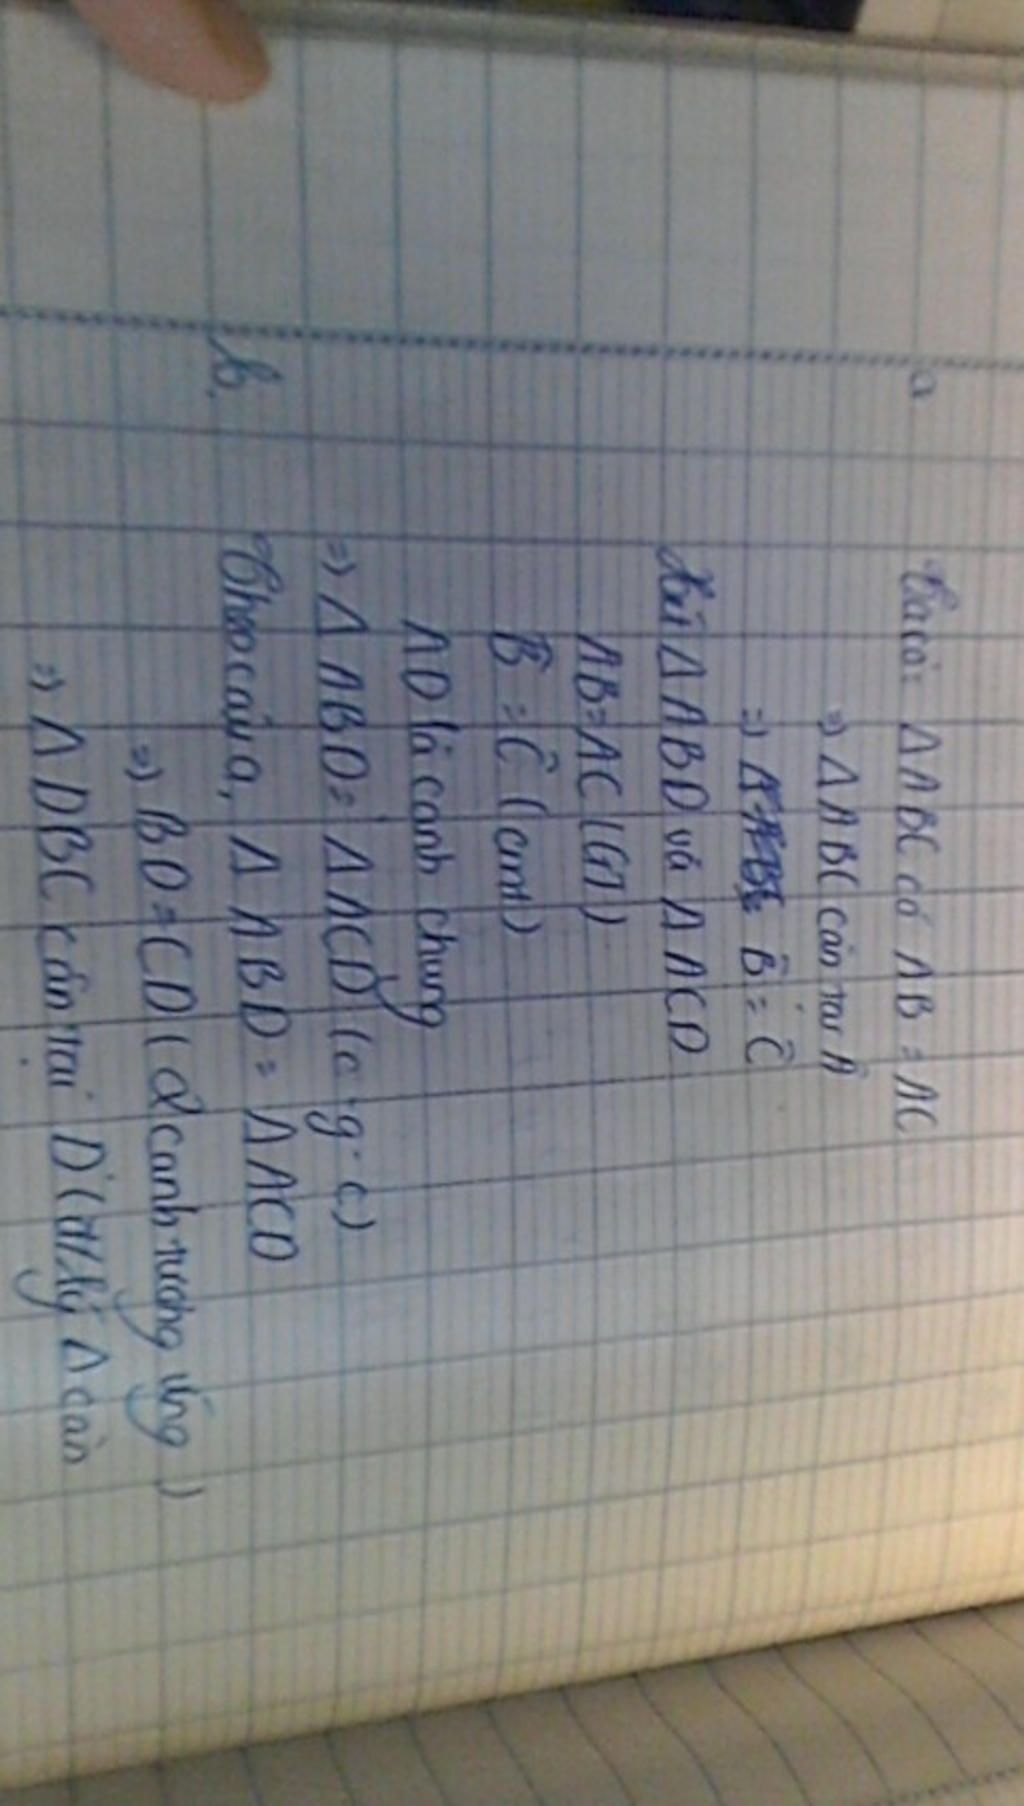 a
Ta có: Δ ABC có AB = AC
=) Δ ABC cân tại A
=) B̂ = Ĉ
Xét Δ ABD và Δ ACD
AB = AC (GT)
B̂ = Ĉ (cmt)
AD là cạnh chung
=) Δ ABD = Δ ACD (c.g.c)
b. Theo câu a, Δ ABD = Δ ACD
=) BD = CD (2 cạnh tương ứng)
=) Δ DBC cân tại D ( Δ cân